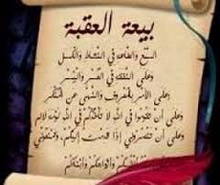 بيعة العقبة
السمع والطاعة في النشاط والكسل
وعلى النفقة في العسر واليسر
وعلى الأمر بالمعروف والنهي عن المنكر
وعلى أن تقوموا في الله لا تأخذكم في الله لومة لائم
وعلى أن تنصروني إذا قدمت إليكم، وتمنعوني
أنفسكم وأزواجكم وأبناءكم